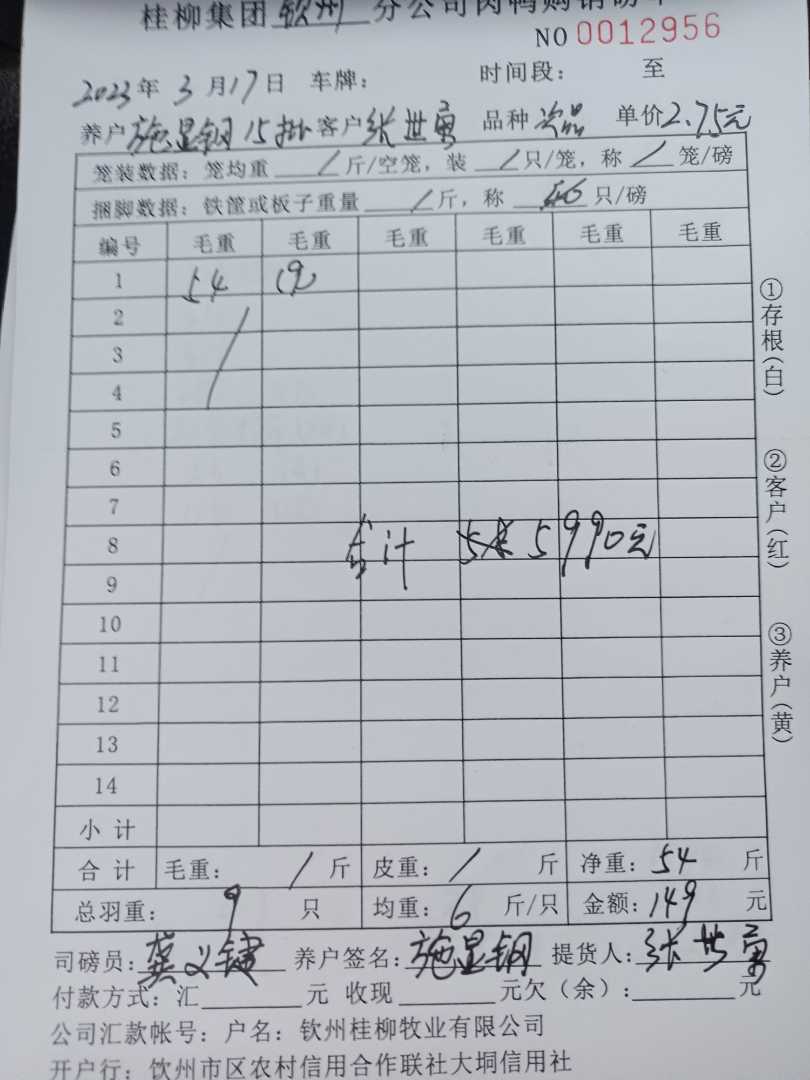 桂柳集团钦州分公司肉鸭购销磅单
NO 0012956
2023年3月17日 车牌: 时间段: 至
养户施显钢15挂客户张世勇 品种次品 单价2.75元
笼装数据: 笼均重 / 斤/空笼, 装 / 只/笼, 称 / 笼/磅
捆脚数据: 铁筐或板子重量 / 斤, 称 只/磅
编号 毛重 毛重 毛重 毛重 毛重 毛重
1 54
2
3
4
5
6
7
8 合计 5990元
9
10
11
12
13
14
小计
合计 毛重: / 斤 皮重: / 斤 净重: 54 斤
总羽重: 9 只 均重: 6 斤/只 金额: 149 元
司磅员: 龚义键 养户签名: 施显钢 提货人: 张世勇
付款方式: 汇 元 收现 元欠(余): 元
公司汇款帐号: 户名: 钦州桂柳牧业有限公司
开户行: 钦州市区农村信用合作联社大垌信用社
①存根(白)
②客户(红)
③养户(黄)